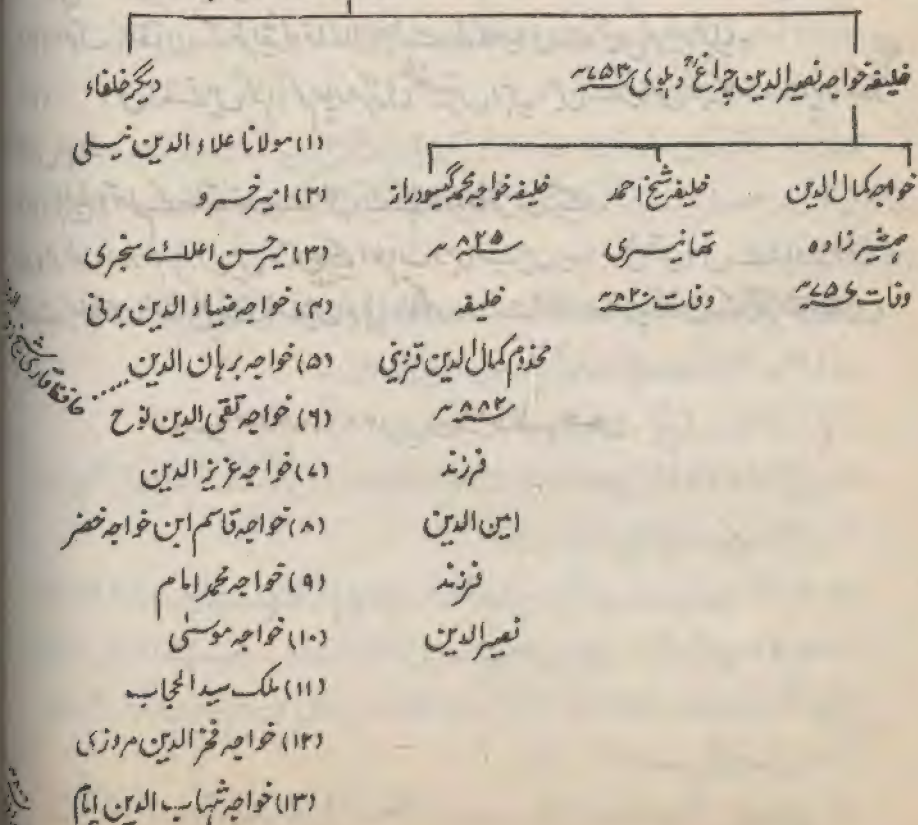 خلیفہ خواجہ نصیر الدین چراغؒ دہلوی ۷۵۳ھ
خواجہ کمال الدین
ہمشیر زادہ
وفات ۷۵۶ھ
خلیفہ شیخ احمد
تھانیسری
وفات ۸۲۰ھ
خلیفہ خواجہ محمد گیسودراز
۸۲۵ھ
خلیفہ
مخدوم کمال الدین قزوینی
۸۸۲ھ
فرزند
امین الدین
فرزند
نصیر الدین
دیگر خلفاء
(۱) مولانا علاء الدین نیلی
(۲) امیر خسرو
(۳) میر حسن اعلائے سنجری
(۴) خواجہ ضیاء الدین برنی
(۵) خواجہ برہان الدین
(۶) خواجہ تقی الدین نوح
(۷) خواجہ عزیز الدین
(۸) خواجہ قاسم ابن خواجہ خضر
(۹) خواجہ محمد امام
(۱۰) خواجہ موسیٰ
(۱۱) ملک سید الحجاب
(۱۲) خواجہ فخر الدین مروزی
(۱۳) خواجہ شہاب الدین امام
حافظ قاری